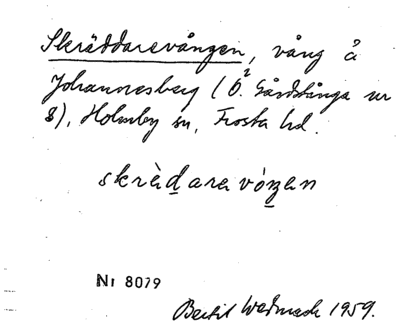 Skräddarevången, vång å
Johannesberg (Ö. Gårdstånga nr
8), Holmby sn, Frosta hd.
skrädaravóŋen
Nr 8079
Bertil Wedmark 1959.